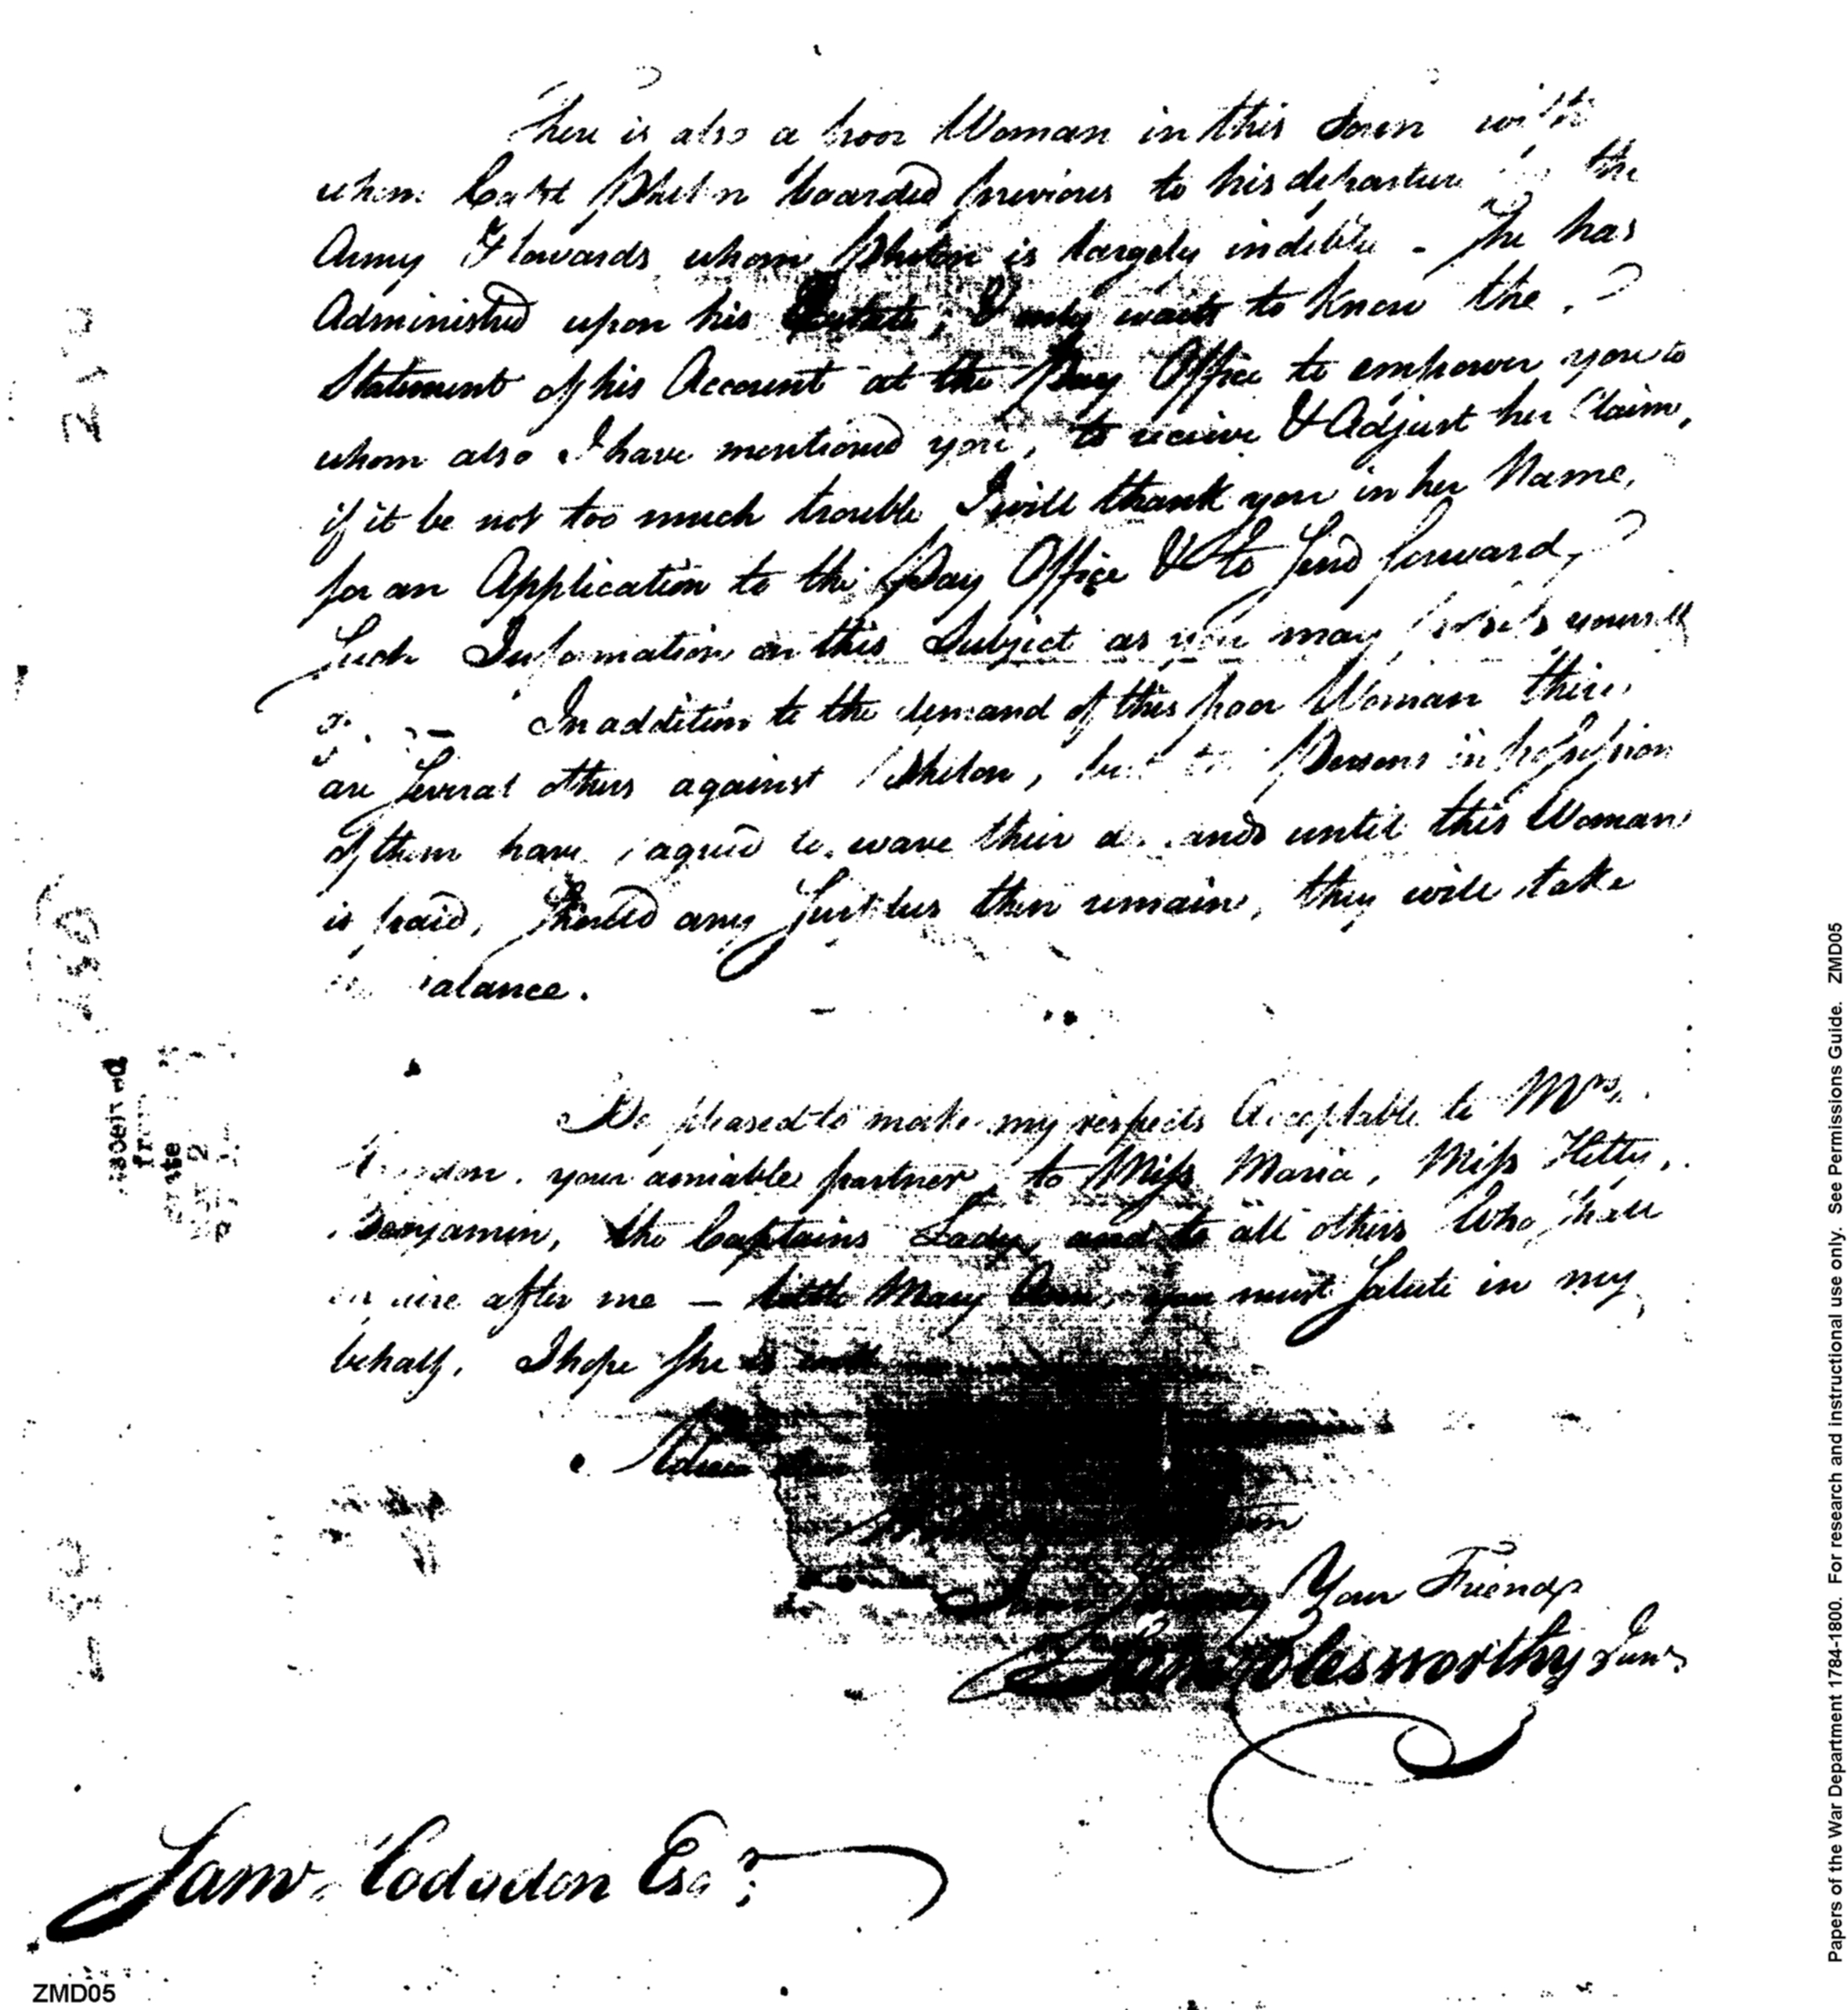 There is also a poor Woman in this Town with
whom Capt Phelon boarded previous to his departure the
Army & towards whom Phelon is largely indebte - She has
Administred upon his Estate, & only waits to know the
Statement of his Account at the Pay Office to empower you to
whom also I have mentioned you, to recieve & Adjust her Claim,
if it be not too much trouble I will thank you in her Name,
for an Application to the Pay Office & to send forward
Such Information on this Subject as you may yourself
In addition to the demand of this poor Woman there
are several others against Phelon, but the Persons in possession
of them have agreed to wave their demands until this Woman
is paid, should any surplus then remain, they will take
balance.
Be pleased to make my respects Acceptable to Mrs.
your amiable partner, to Miss Maria, Miss Hetty,
Benjamin, the Captains Lady, and to all others who shall
enquire after me — little Mary Ann, you must salute in my
behalf, I hope she is well
Your Friend
Holesworthy Junr
Saml. Coddon Esqr
ZMD05
Papers of the War Department 1784-1800. For research and instructional use only. See Permissions Guide. ZMD05